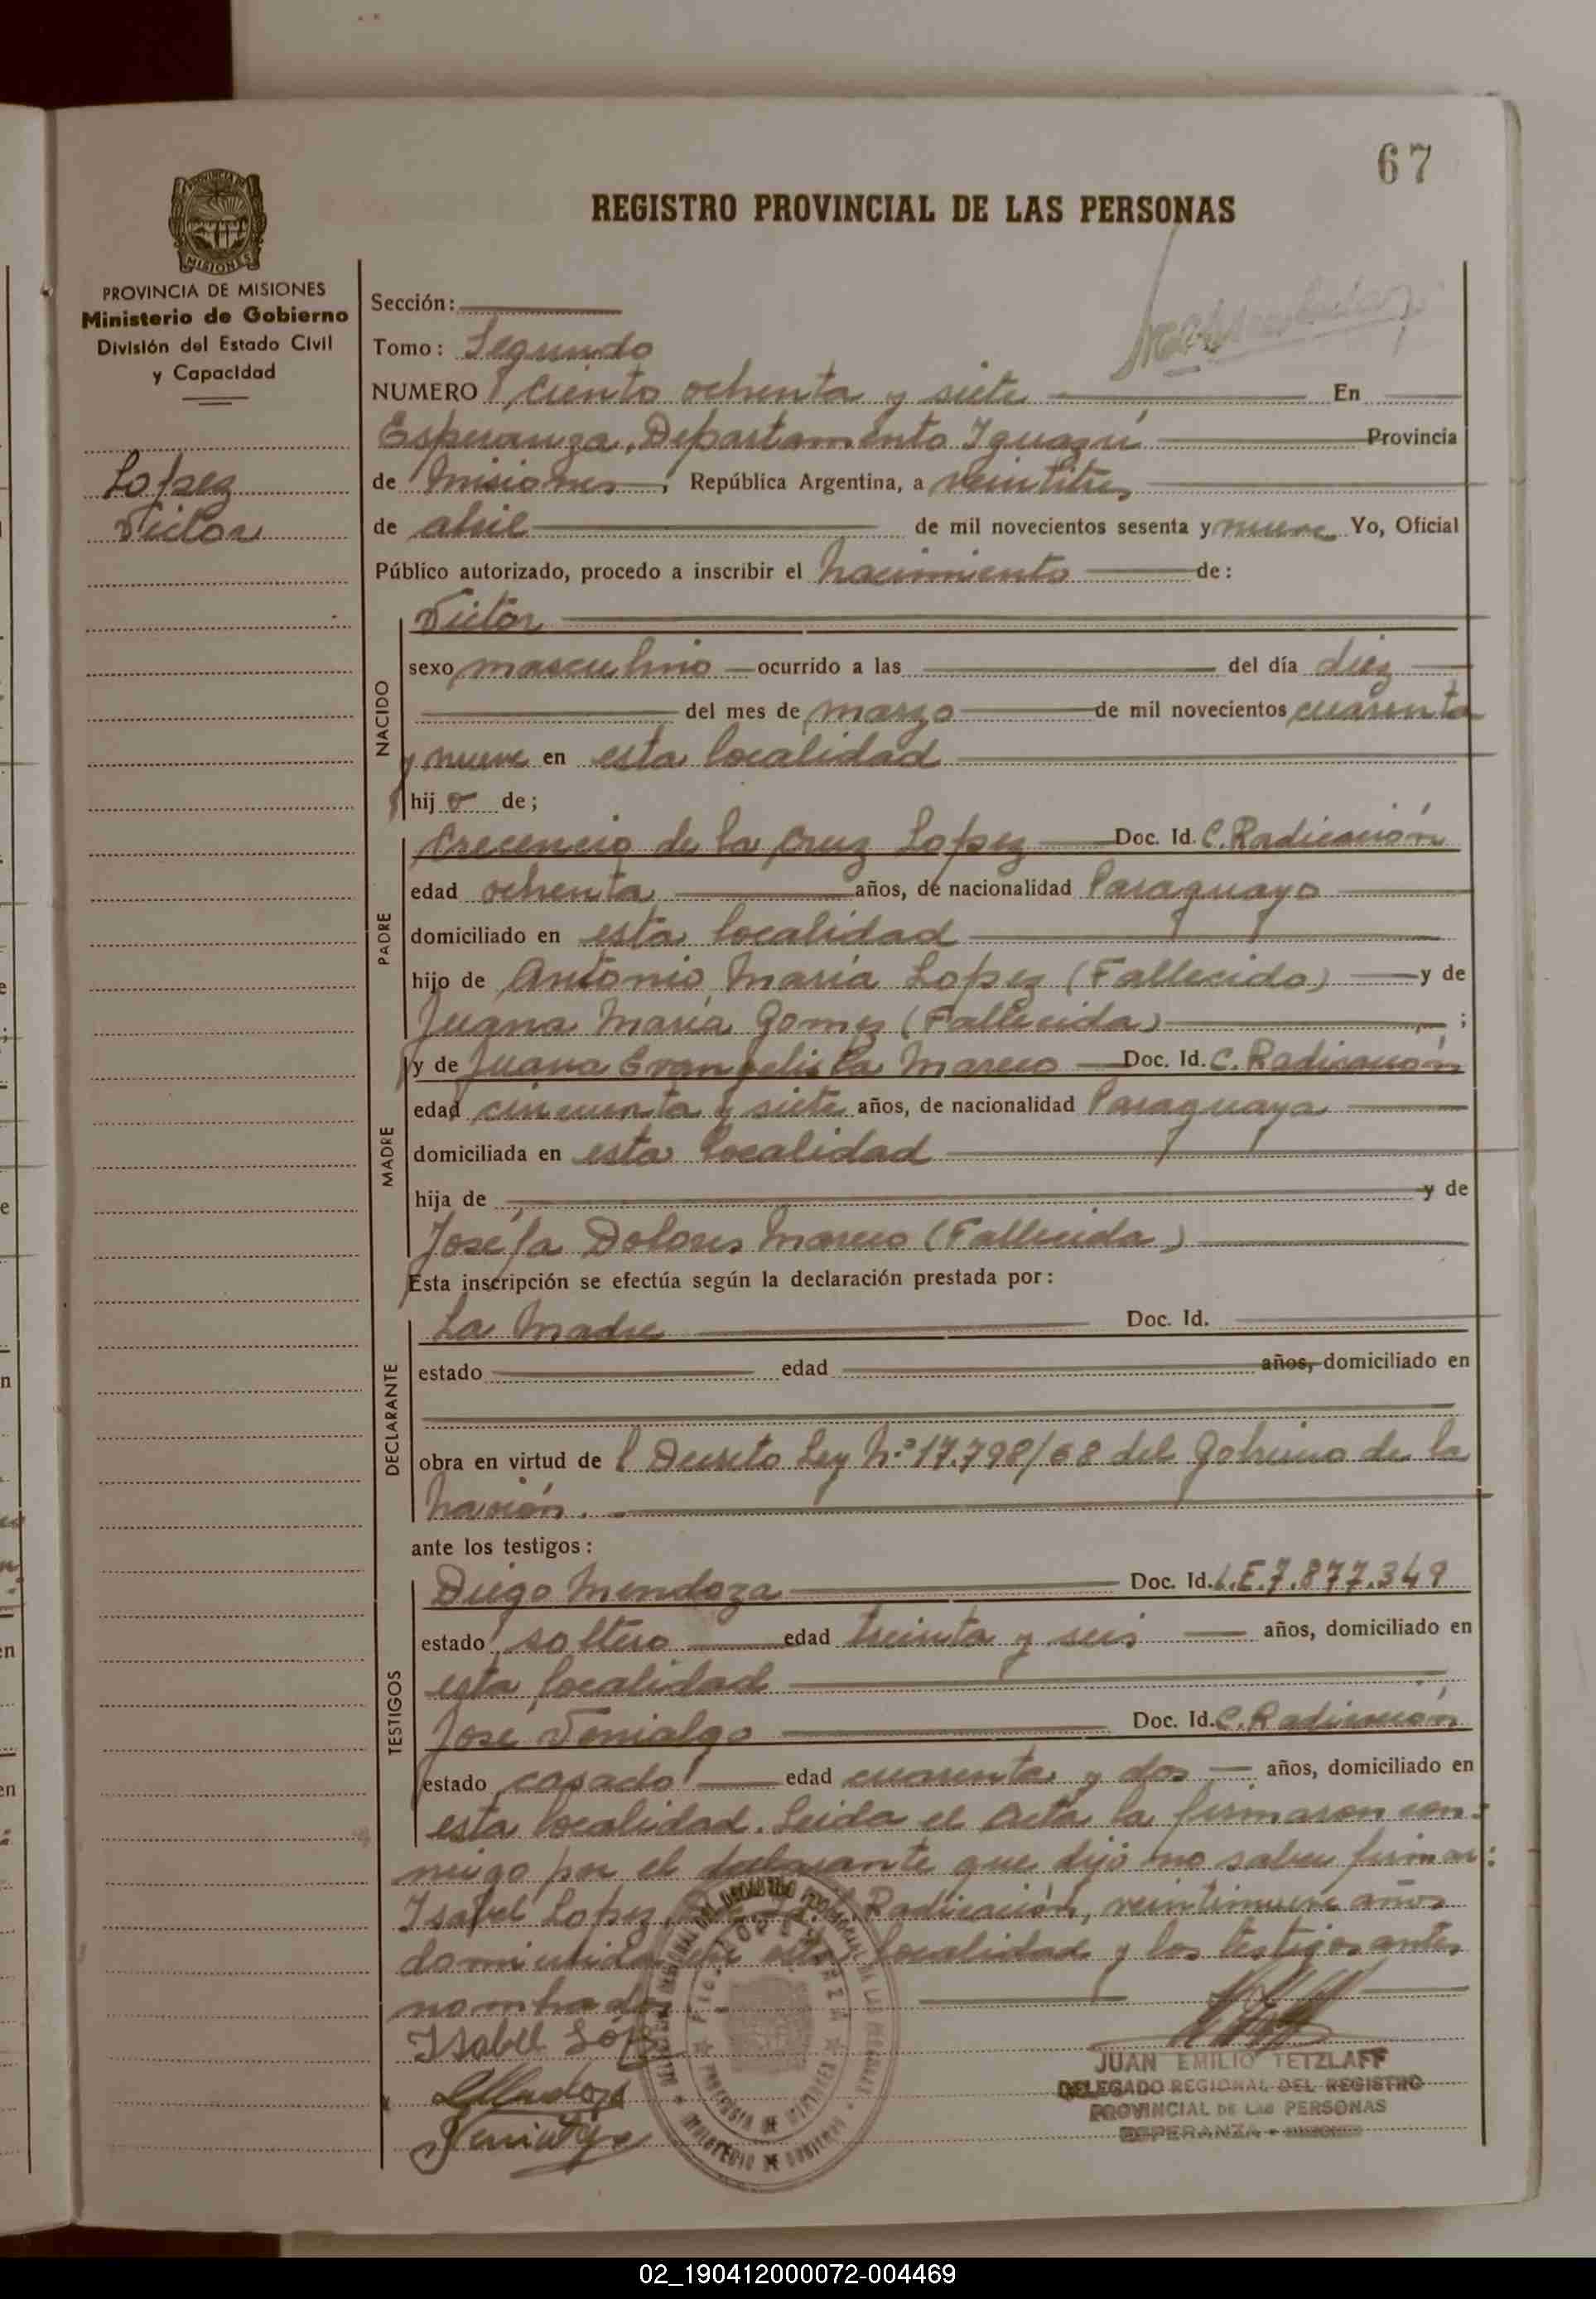 67
REGISTRO PROVINCIAL DE LAS PERSONAS
MISIONES
PROVINCIA DE MISIONES
Ministerio de Gobierno
División del Estado Civil
y Capacidad
Lopez
Victor
Sección:
Tomo: Segundo
NUMERO Ciento ochenta y siete En
Esperanza, Departamento Iguazú Provincia
de Misiones, República Argentina, a veintitres
de abril de mil novecientos sesenta y nueve Yo, Oficial
Público autorizado, procedo a inscribir el Nacimiento de:
NACIDO
Victor
sexo masculino ocurrido a las del día diez
del mes de marzo de mil novecientos cuarenta
y nueve en esta localidad
hijo de;
PADRE
Crecencio de la Cruz Lopez Doc. Id. C. Radicación
edad ochenta años, de nacionalidad Paraguayo
domiciliado en esta localidad
hijo de Antonio María Lopez (Fallecido) y de
Juana María Gomez (Fallecida) ;
MADRE
y de Juana Evangelista Mareco Doc. Id. C. Radicación
edad cincuenta y siete años, de nacionalidad Paraguaya
domiciliada en esta localidad
hija de y de
Josefa Dolores Mareco (Fallecida)
Esta inscripción se efectúa según la declaración prestada por:
DECLARANTE
La Madre Doc. Id.
estado edad años, domiciliado en
obra en virtud de l Decreto Ley N.º 17.798/68 del Gobierno de la
Nación.
ante los testigos:
TESTIGOS
Diego Mendoza Doc. Id. L.E.7.877.349
estado soltero edad treinta y seis años, domiciliado en
esta localidad
José Venialgo Doc. Id. C. Radicación
estado casado edad cuarenta y dos años, domiciliado en
esta localidad. Leida el Acta la firmaron con-
migo por el declarante que dijo no saber firmar:
Isabel Lopez, Radicación, veintinueve años
localidad y los testigos antes
nombrados
Isabel López
JUAN EMILIO TETZLAFF
DELEGADO REGIONAL DEL REGISTRO
PROVINCIAL DE LAS PERSONAS
ESPERANZA - MISIONES
02_190412000072-004469